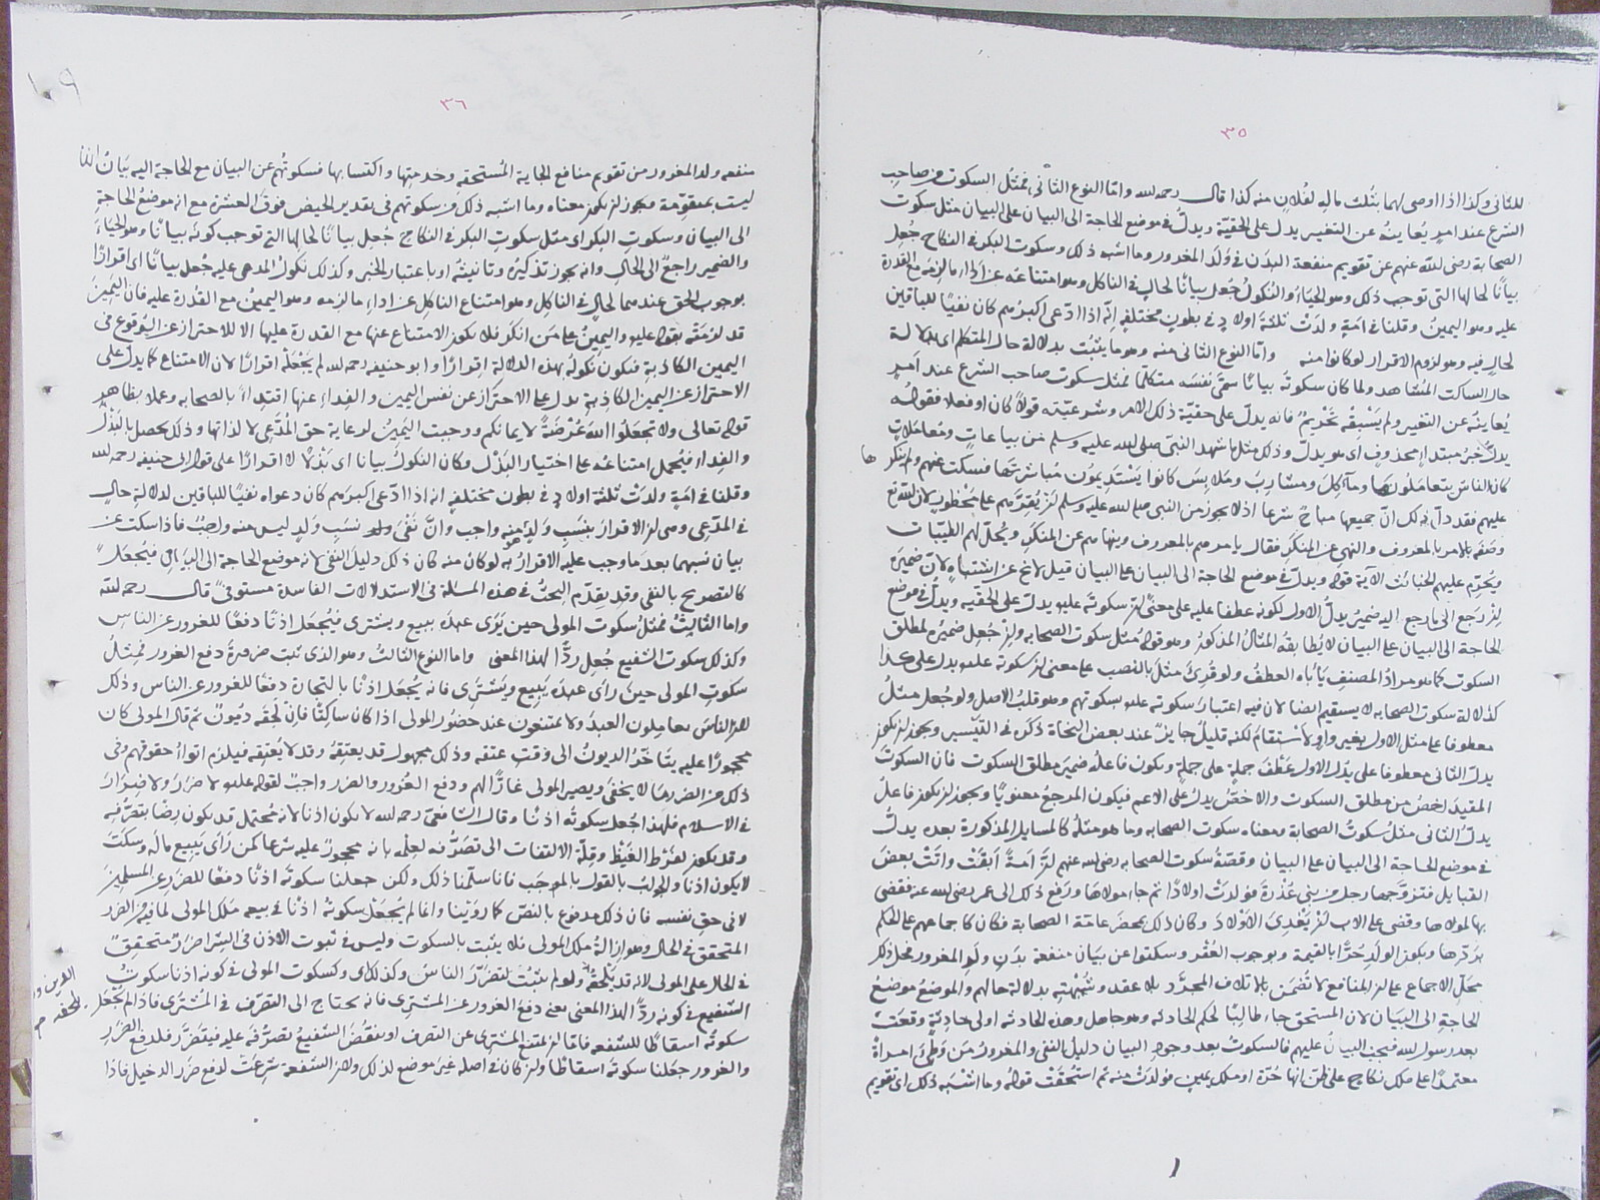 ٣٥
للثاني وكذا اذا اوصى لهما بثلث ماله لفلان منه كذا قال رحمه الله واما النوع الثاني فمثل السكوت من صاحب
الشرع عند امر يعاينه عن التغيير يدل على الحقية ويدل في موضع الحاجة الى البيان على البيان مثل سكوت
الصحابة رضى الله عنهم عن تقويم منفعة البدن في ولد المغرور وما اشبه ذلك وسكوت البكر في النكاح جعل
بيانا لحالها التي توجب ذلك وهو الحياء والنكول جعل بيانا لحال في الناكل وهو امتناعه عن اداء ما لزمه مع القدرة
عليه وهو اليمين وقلنا في امة ولدت ثلثة اولاد في بطون مختلفة انه اذا ادعى اكبرهم كان نفيا للباقين
لحال فيه وهو لزوم الاقرار لو كانوا منه واما النوع الثاني منه وهو ما يثبت بدلالة حال المتكلم اى بدلالة
حال الساكت المشاهد ولما كان سكوته بيانا سمى نفسه متكلما فمثل سكوت صاحب الشرع عند امر
يعاينه عن التغيير ولم يسبقه تحريم فانه يدل على حقية ذلك الامر وشرعيته قولا كان او فعلا فقوله
يدل خبر مبتدا محذوف اى هو يدل وذلك مثل ما شهد النبى صلى الله عليه وسلم من بياعات ومعاملات
كان الناس يتعاملونها ومآكل ومشارب وملابس كانوا يستديمون مباشرتها فسكت عنهم ولم ينكرها
عليهم فقد دل ذلك ان جميعها مباح شرعا اذ لا يجوز من النبى صلى الله عليه وسلم ان يقرهم على محظور لان الله تع
وصفه بالامر بالمعروف والنهى عن المنكر فقال يامرهم بالمعروف وينهاهم عن المنكر ويحل لهم الطيبات
ويحرم عليهم الخبائث الآية قوله ويدل في موضع الحاجة الى البيان على البيان قيل لا يخ عن اشتباه لان ضميره
ان رجع الى ما رجع اليه ضمير يدل الاول لكونه عطفا عليه على معنى ان سكوته عليه يدل على الحقيه ويدل في موضع
الحاجة الى البيان على البيان لا يطابقه المثال المذكور وهو قوله مثل سكوت الصحابه وان جعل ضميره لمطلق
السكوت كما هو مراد المصنف يأباه العطف ولو قرئ مثل بالنصب على معنى ان سكوته عليه يدل على هذا
كدلالة سكوت الصحابه لا يستقيم ايضا لان فيه اعتبار سكوته عليه بسكوتهم وهو قلب الاصل ولو جعل مثل
معطوفا على مثل الاول بغير واو لاستقام لكنه قليل جايز عند بعض النحاة ذكره في التيسير ويجوز ان يكون
يدل الثاني معطوفا على يدل الاول عطف جملة على جملة ويكون فاعله ضمير مطلق السكوت فان السكوت
المقيد اخص من مطلق السكوت والاخص يدل على الاعم فيكون المرجع معنويا ويجوز ان يكون فاعل
يدل الثاني مثل سكوت الصحابة ومعناه سكوت الصحابه وما هو مثله كالمسايل المذكورة بعده يدل
في موضع الحاجة الى البيان على البيان وقصة سكوت الصحابه رضى الله عنهم ان امة ابقت واتت بعض
القبايل فتزوجها رجل من بنى عذرة فولدت اولادا ثم جاء مولاها ورفع ذلك الى عمر رضى الله عنه فقضى
بها لمولاها وقضى على الاب ان يفدى الاولاد وكان ذلك بمحضر عامة الصحابة فكان كاجماعهم على الحكم
بردها وبكون الولد حرا بالقيمة وبوجوب العقر وسكتوا عن بيان منفعة بدن ولد المغرور فحل ذلك
محل الاجماع على ان المنافع لا تضمن بالاتلاف المجرد بلا عقد وشبهته بدلالة حالهم والموضع موضع
الحاجة الى البيان لان المستحق جاء طالبا لحكم الحادثه وهو جاهل وهذه الحادثه اولى حادثة وقعت
بعد رسول الله فيجب البيان عليهم فالسكوت بعد وجوب البيان دليل النفى والمغرور من وطئ امراة
معتمدا على ملك نكاح على ظن انها حرة او ملك يمين فولدت منه ثم استحقت قوله وما اشبه ذلك اى تقويم
١
٣٦
منفعه ولد المغرور من تقويم منافع الجاية المستحقه وخدمتها واكتسابها فسكوتهم عن البيان مع الحاجة اليه بيان انها
ليست بمتقومة ويجوز ان يكون معناه وما اشبه ذلك من سكوتهم في تقدير الحيض فوق العشرة مع انه موضع الحاجة
الى البيان وسكوت البكر اى مثل سكوت البكر في النكاح جعل بيانا لحالها التي توجب كونه بيانا وهو الحياء
والضمير راجع الى الحال وانه يجوز تذكيره وتانيثه او باعتبار الخبر وكذلك نكول المدعى عليه جعل بيانا اى اقرارا
بوجوب الحق عندهما لحال في الناكل وهو امتناع الناكل عن اداء ما لزمه وهو اليمين مع القدرة عليه فان اليمين
قد لزمته بقوله عليه واليمين على من انكر فلا يكون الامتناع عنها مع القدرة عليها الا للاحتراز عن الوقوع في
اليمين الكاذبة فيكون نكوله بهذه الدلالة اقرارا وابو حنيفه رحمه الله لم يجعله اقرارا لان الامتناع كما يدل على
الاحتراز عن اليمين الكاذبة يدل على الاحتراز عن نفس اليمين والفداء عنها اقتداء بالصحابه وعملا بظاهر
قوله تعالى ولا تجعلوا الله عرضة لايمانكم ووجبت اليمين لرعاية حق المدعى لا لذاتها وذلك يحصل بالبذل
والفداء فيحمل امتناعه على اختيار البذل وكان النكول بيانا اى بذلا لا اقرارا على قول ابى حنيفه رحمه الله
وقلنا في امة ولدت ثلثة اولاد في بطون مختلفة انه اذا ادعى اكبرهم كان دعواه نفيا للباقين لدلالة حال
في المدعى وهي ان الاقرار بنسب ولد هو منه واجب وان نفى نسب ولد ليس منه واجب فاذا سكت عن
بيان نسبهما بعد ما وجب عليه الاقرار به لو كان منه كان ذلك دليل النفى لانه موضع الحاجة الى البيان فيجعل
كالتصريح بالنفى وقد تقدم البحث في هذه المسلة في الاستدلالات الفاسدة مستوفى قال رحمه الله
واما الثالث فمثل سكوت المولى حين يرى عبده يبيع ويشترى فيجعل اذنا دفعا للغرور عن الناس
وكذلك سكوت الشفيع جعل ردا لهذا المعنى واما النوع الثالث وهو الذى ثبت ضرورة دفع الغرور فمثل
سكوت المولى حين رأى عبده يبيع ويشترى فانه يجعل اذنا بالتجارة دفعا للغرور عن الناس وذلك
لان الناس يعاملون العبد ولا يمتنعون عند حضور المولى اذا كان ساكتا فان لحقه ديون ثم قال المولى كان
محجورا عليه يتاخر الديون الى وقت عتقه وذلك مجهول قد يعتقه وقد لا يعتقه فيلزم اتواء حقوقهم وفى
ذلك من الضرر ما لا يخفى ويصير المولى غارا لهم ودفع الغرور والضرر واجب لقوله عليه لا ضرر ولا ضرار
في الاسلام فلهذا جعل سكوته اذنا وقال الشافعى رحمه الله لا يكون اذنا لانه محتمل قد يكون رضا بتصرفه
وقد يكون لفرط الغيظ وقلة الالتفات الى تصرفه لعلمه بانه محجور عليه شرعا كمن راى يبيع ماله وسكت
لا يكون اذنا والجواب بالقول بالموجب فانا سلمنا ذلك ولكن جعلنا سكوته اذنا دفعا للضرر عن المسلمين
لا في حق نفسه فان ذلك مدفوع بالنص كما روينا وانما لم يجعل سكوته اذنا في بيعه ملك المولى لما فيه من الضرر
المتحقق في الحال وهو ازالة ملك المولى فلا يثبت بالسكوت وليس في ثبوت الاذن في الشراء ضرر متحقق
في الحال على المولى لانه قد يلحقه ولو لم يثبت لتضرر الناس وكذلك اى وكسكوت المولى في كونه اذنا سكوت
الدين وقد لا
يلحقه صح
الشفيع في كونه ردا لهذا المعنى يعنى دفع الغرور عن المشترى فانه يحتاج الى التصرف في المشترى فاذا لم يجعل
سكوته اسقاطا للشفعه فاما ان يمتنع المشترى عن التصرف او ينقض الشفيع تصرفه عليه فيتضرر فلدفع الضرر
والغرور جعلنا سكوته اسقاطا وان كان في اصله غير موضع لذلك ولان الشفعة شرعت لدفع ضرر الدخيل فاذا